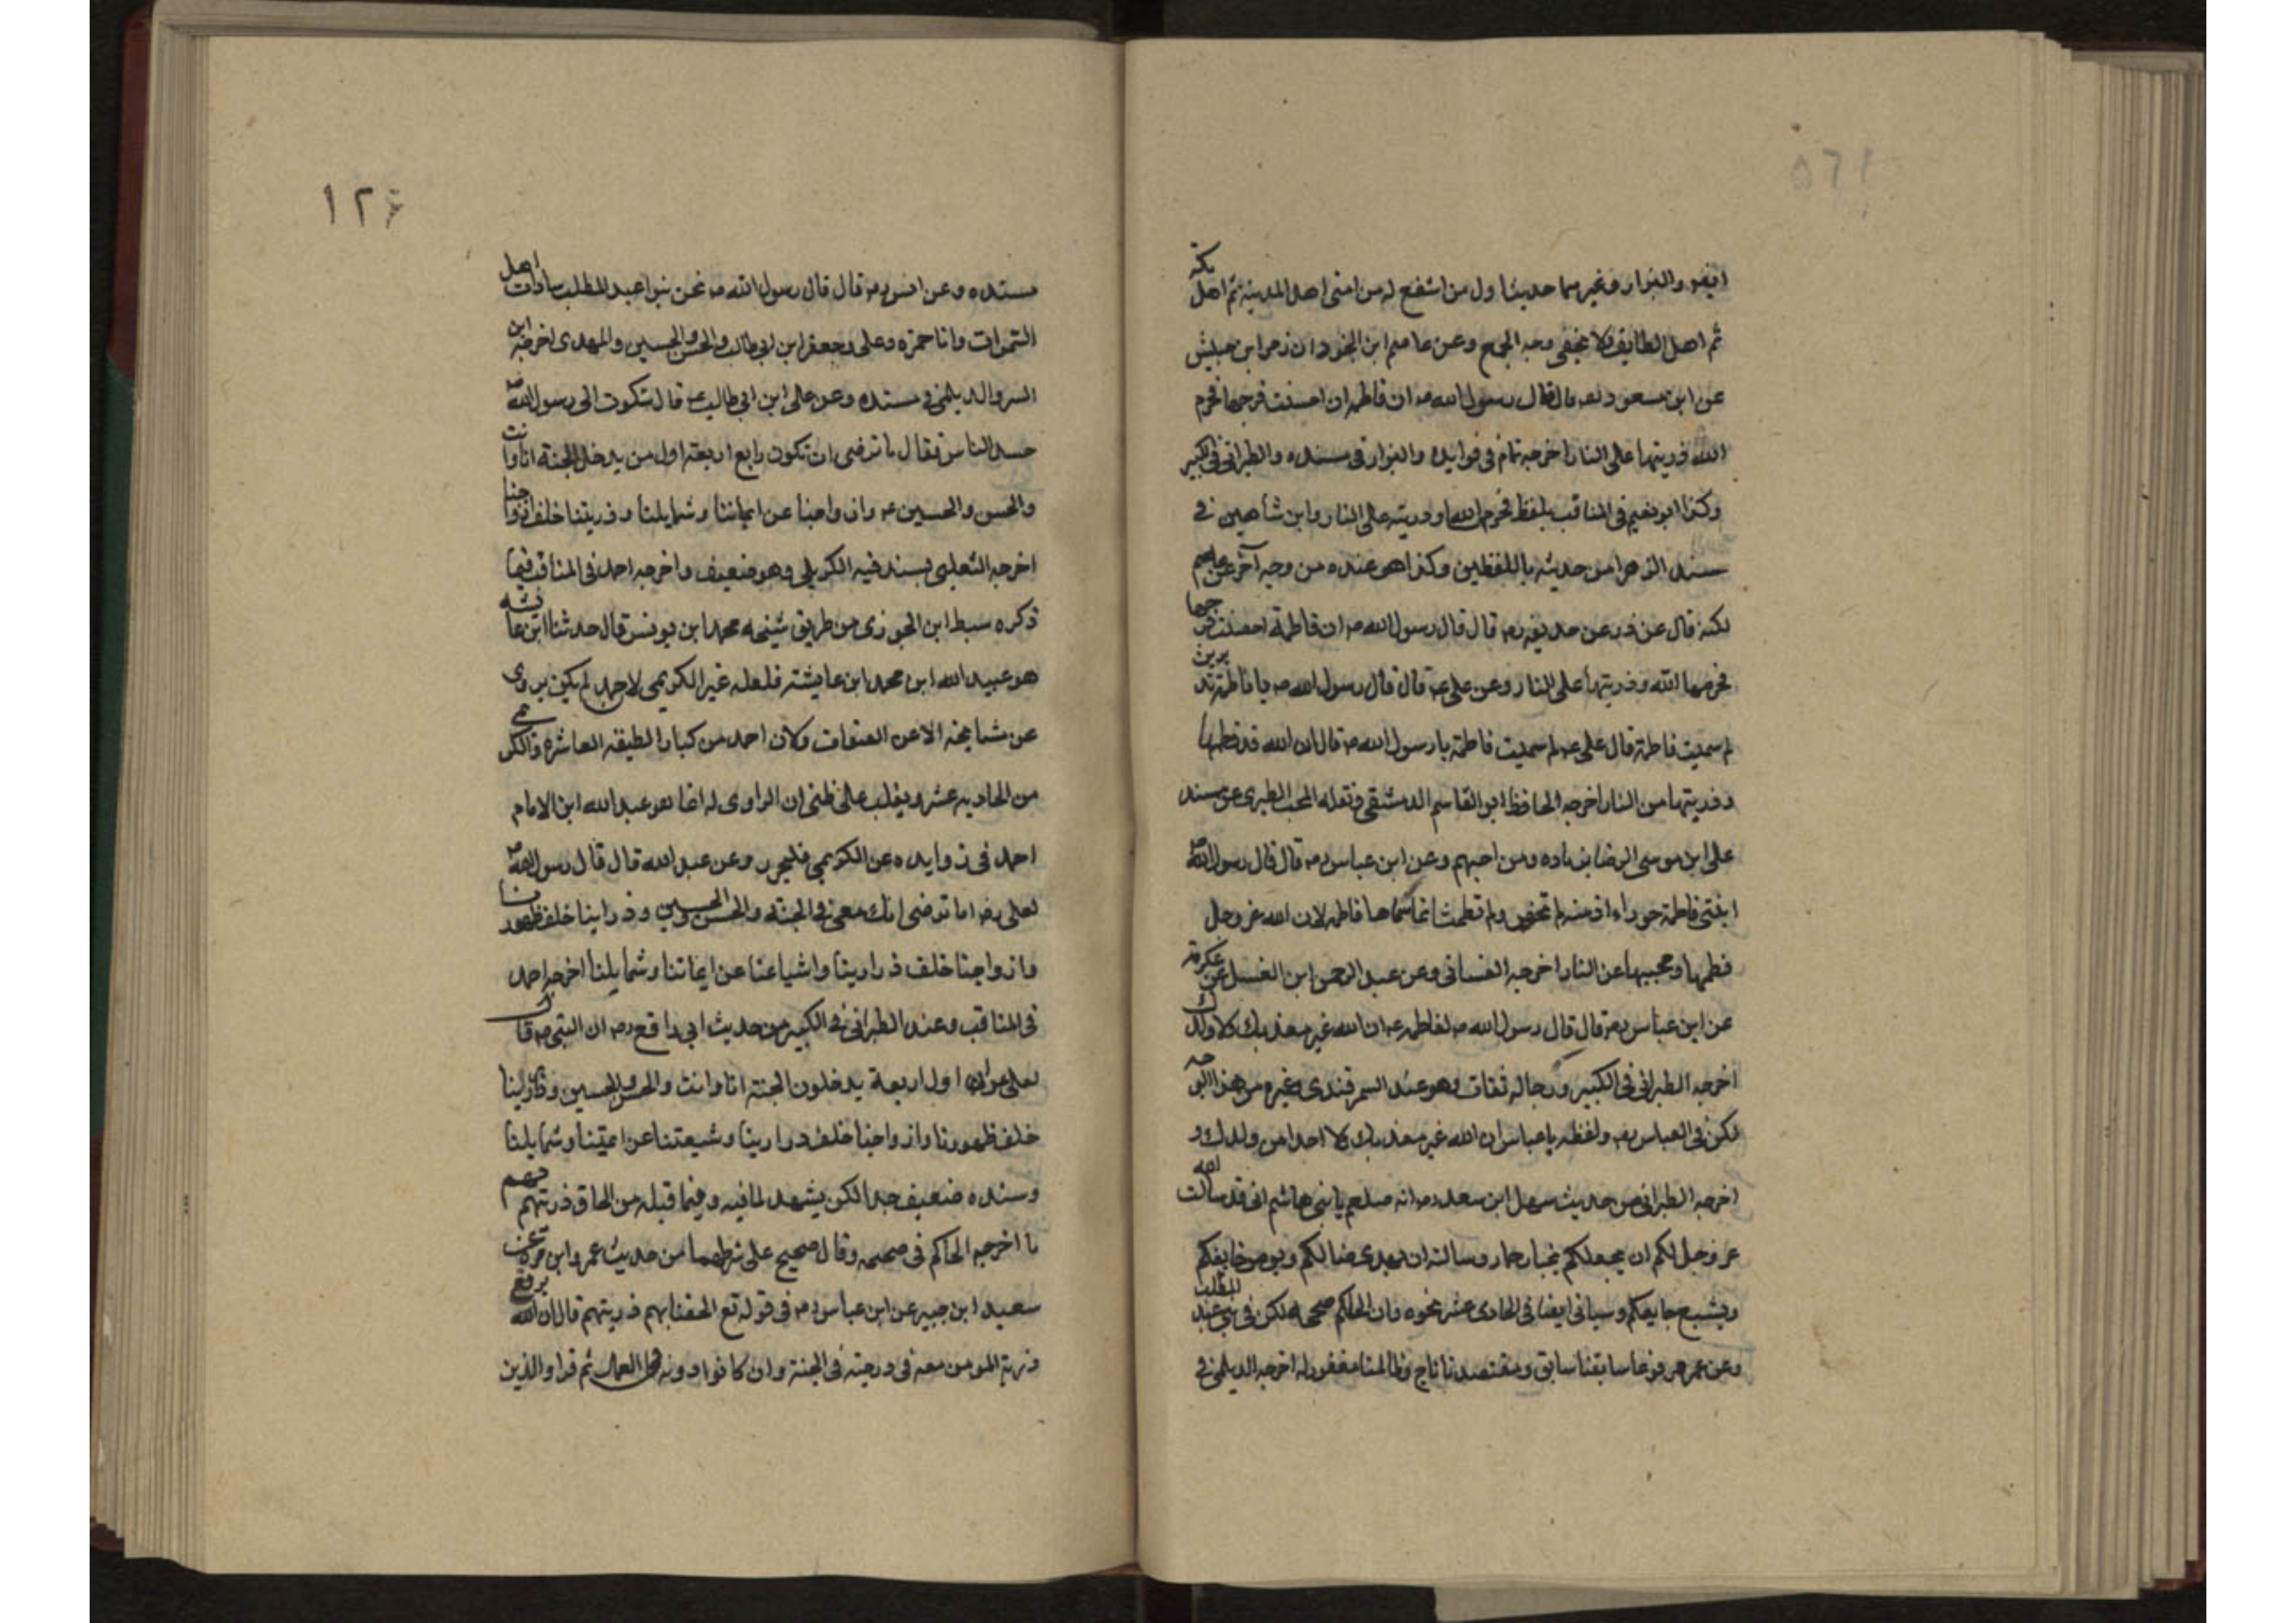 ايضا والبزار وغيرهما حديث اول من اشفع له من امتى اهل المدينة ثم اهل مكة
ثم اهل الطايف ولا يخفى وجه الجمع وعن عاصم ابن ان زر ابن حبيش
عن ابن مسعود قال قال رسول الله ص ان فاطمه ان احصنت فرجها فحرم
الله ذريتها على النار اخرجه تمام فى فوايده والبزار فى مسنده والطبرانى فى الكبير
وكذا ابو نعيم فى المناقب بلفظ فحرم الله وذريته على النار وابن شاهين فى
مسند الزهرا من حديثه باللفظين وكذا هو عنده من وجه آخر عن عاصم
لكنه قال عن ذر عن حذيفه رم قال قال رسول الله ص ان فاطمة احصنت فرجها
فحرمها الله وذريتها على النار وعن على ع قال قال رسول الله ص يا فاطمة تدرين
لم سميت فاطمة قال على ع لم سميت فاطمة يا رسول الله ص قال ان الله قد فطمها
وذريتها من النار اخرجه الحافظ ابو القاسم الدمشقى ونقله المحب الطبرى عن مسند
على ابن موسى الرضا بزياده ومن احبهم وعن ابن عباس رم قال قال رسول الله ص
ابنتى فاطمة حوراء ادميه لم تحض ولم تطمث انما سماها فاطمه لان الله عز وجل
فطمها ومحبيها عن النار اخرجه الغسانى وعن عبد الرحمن ابن الغسيل عن عكرمة
عن ابن عباس رم قال قال رسول الله ص لفاطمه ع ان الله غير معذبك ولا ولدك
اخرجه الطبرانى فى الكبير ورجاله ثقات وهو عند السمرقندى وغيره من هذا الوجه
لكن فى العباس رم ولفظه يا عباس ان الله غير معذبك ولا احدا من ولدك و
اخرجه الطبرانى من حديث سهل ابن سعد رم انه صلعم يا بنى هاشم انى قد سالت الله
عز وجل لكم ان يجعلكم نجبا رحما وسالته ان يهدى ضالكم ويومن خايفكم
ويشبع جايعكم وسياتى ايضا فى الحادى عشر نحوه وان الحاكم صححه لكن فى بنى عبد المطلب
وعن عمر مرفوعا سابقنا سابق ومقتصدنا ناج وظالمنا مغفور له اخرجه الديلمى فى
١٢٤
مسنده وعن انس رم قال قال رسول الله ص نحن بنوا عبد المطلب سادات اهل
السموات وانا حمزه وعلى وجعفر ابن ابى طالب والحسن والحسين والمهدى اخرجه ابن
السر والديلمى فى مسنده وعن على ابن ابى طالب ع قال شكوت الى رسول الله ص
حسد الناس فقال ما ترضى ان تكون رابع اربعة اول من يدخل الجنة انا وانت
والحسن والحسين ع وازواجنا عن ايماننا وشمايلنا وذريتنا خلف ازواجنا
اخرجه الثعلبى بسند فيه الكديمى وهو ضعيف واخرجه احمد فى المناقب فيما
ذكره سبط ابن الجوزى من طريق شيخه محمد ابن يونس قال حدثنا ابن عايشه
هو عبيد الله ابن محمد ابن عايشة فلعله غير الكريمى لا احمد لم يكن يروى
عن مشايخه الا عن الثقات وكان احمد من كبار الطبقه العاشره والكريمى
من الحاديه عشر ويغلب على ظنى ان الراوى له انما هو عبد الله ابن الامام
احمد فى زوايده عن الكويمى فليحرر وعن عبد الله قال قال رسول الله ص
لعلى رم اما ترضى انك معى فى الجنة والحسن والحسين وذرارينا خلف ظهورنا
وازواجنا خلف ذرارينا واشياعنا عن ايماننا وشمايلنا اخرجه احمد
فى المناقب وعند الطبرانى فى الكبير من حديث ابى رافع رم ان النبى ص قال
لعلى ع ان اول اربعة يدخلون الجنة انا وانت والحسن والحسين وذرارينا
خلف ظهورنا وازواجنا خلف ذرارينا وشيعتنا عن ايمننا وشمايلنا
وسنده ضعيف جدا لكن يشهد لما فيه وفيما قبله من الحاق ذريتهم بهم
ما اخرجه الحاكم فى صحيحه وقال صحيح على شرطهما من حديث عمرو ابن مره عن
سعيد ابن جبير عن ابن عباس رم فى قوله تع الحقنا بهم ذريتهم قال ان الله يرفع
ذرية المومن معه فى درجته فى الجنة وان كانوا دونه فى العمل ثم قرا والذين